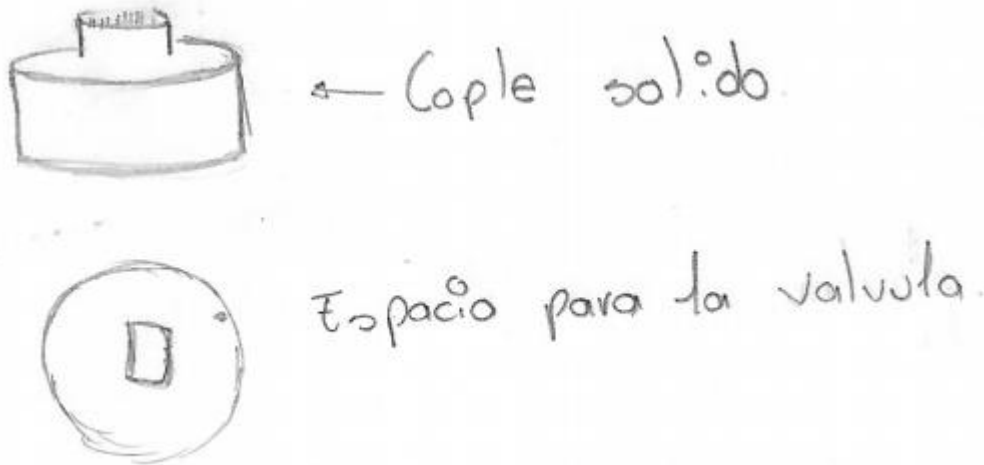 Cople solido.
Espacio para la valvula.